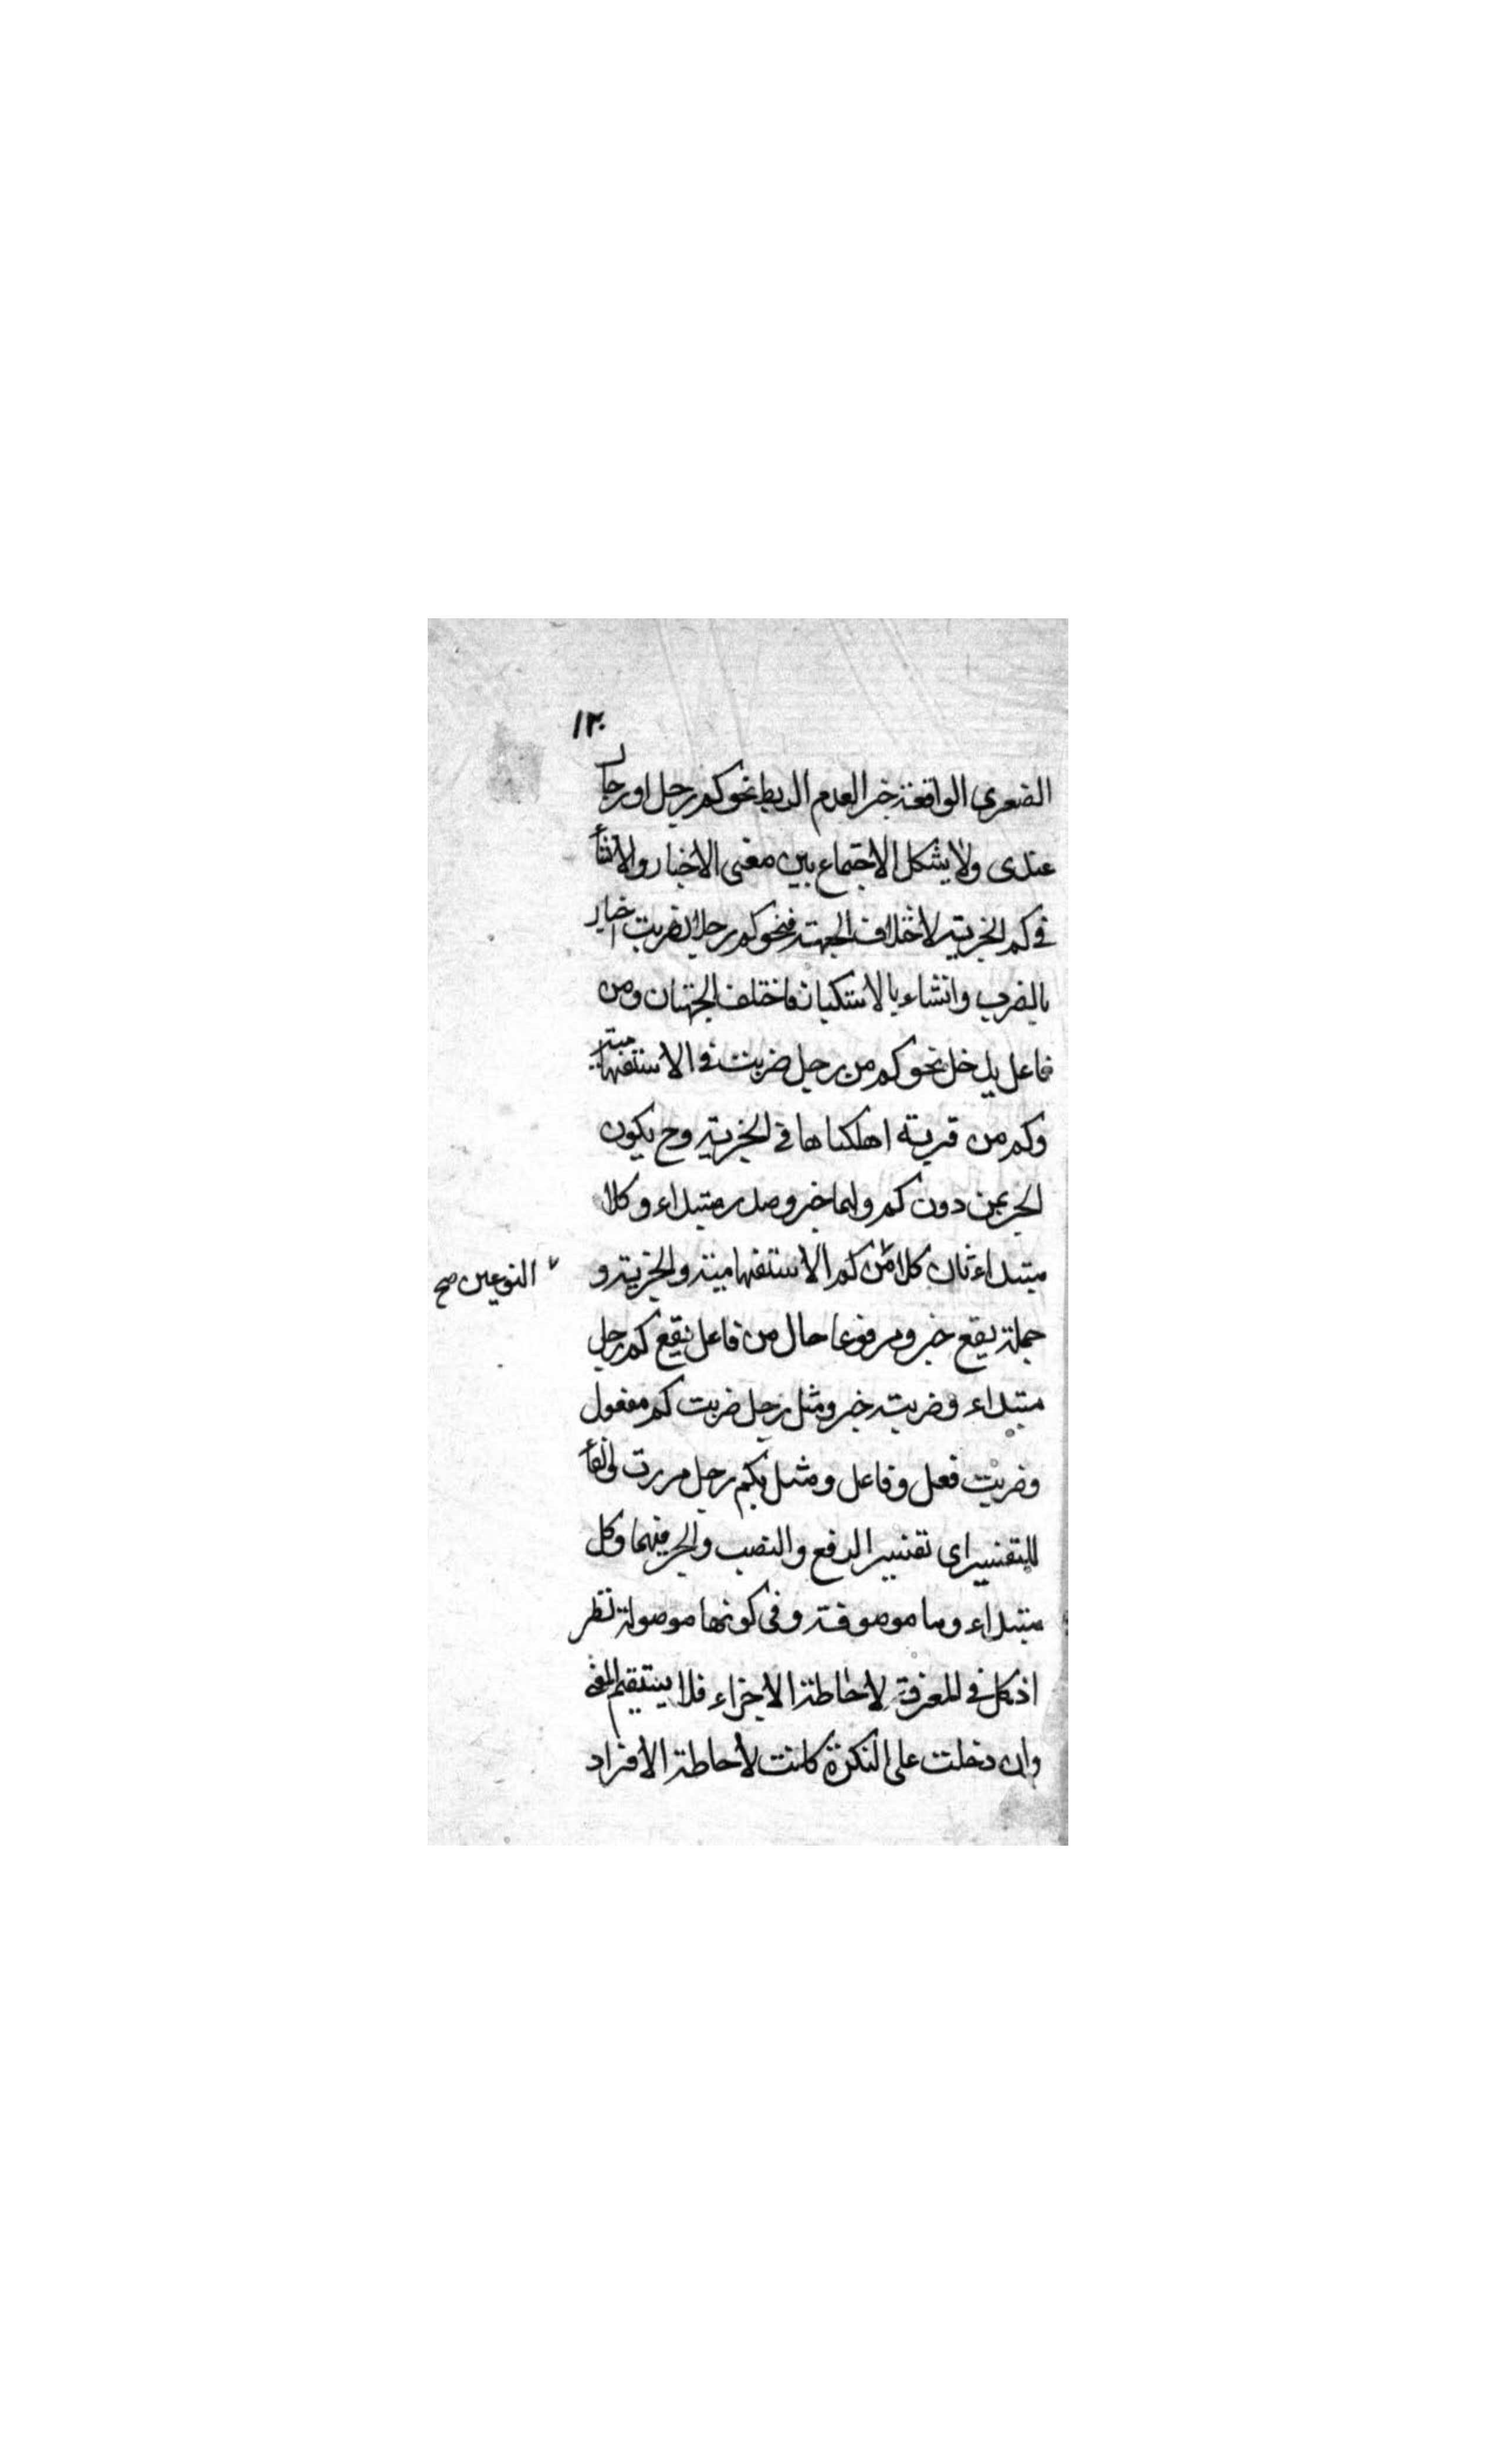 ١٣٠
الصغرى الواقعة خبرا لعدم الربط نحو كم رجل او رجال
عندى ولا يشكل الاجتماع بين معنى الاخبار والانشاء
فى كم الخبرية لاختلاف الجهة فنحو كم رجلا ضربت اخبار
بالضرب وانشاء بالاستكبار فاختلف الجهتان ومن
فاعل يدخل نحو كم من رجل ضربت فى الاستفهامية
وكم من قرية اهلكناها فى الخبرية وح يكون
الجر بمن دون كم ولهما خبر وصدر مبتداء وكلا
مبتداء ثان كلا من كم الاستفهامية والخبرية و
النوعين صح
جملة يقع خبر ومرفوعا حال من فاعل يقع كم رجل
مبتداء وضربته خبر ومثل رجل ضربت كم مفعول
وضربت فعل وفاعل ومثل بكم رجل مررت والفاء
للتفسير اى تفسير الرفع والنصب والجر فيهما وكل
مبتداء وما موصوفة وفى كونها موصولة نظر
اذ كل فى المعرفة لاحاطة الاجزاء فلا يستقيم المعنى
وان دخلت على النكرة كانت لاحاطة الافراد